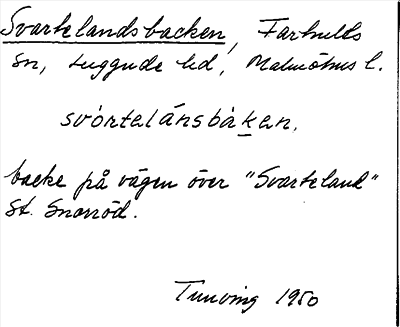 Svartelandsbacken, Farhults
sn, Luggude hd, Malmöhus l.
svórtelánsbàken.
backe på vägen över "Svarteland"
St. Snorröd.
Tunving 1950